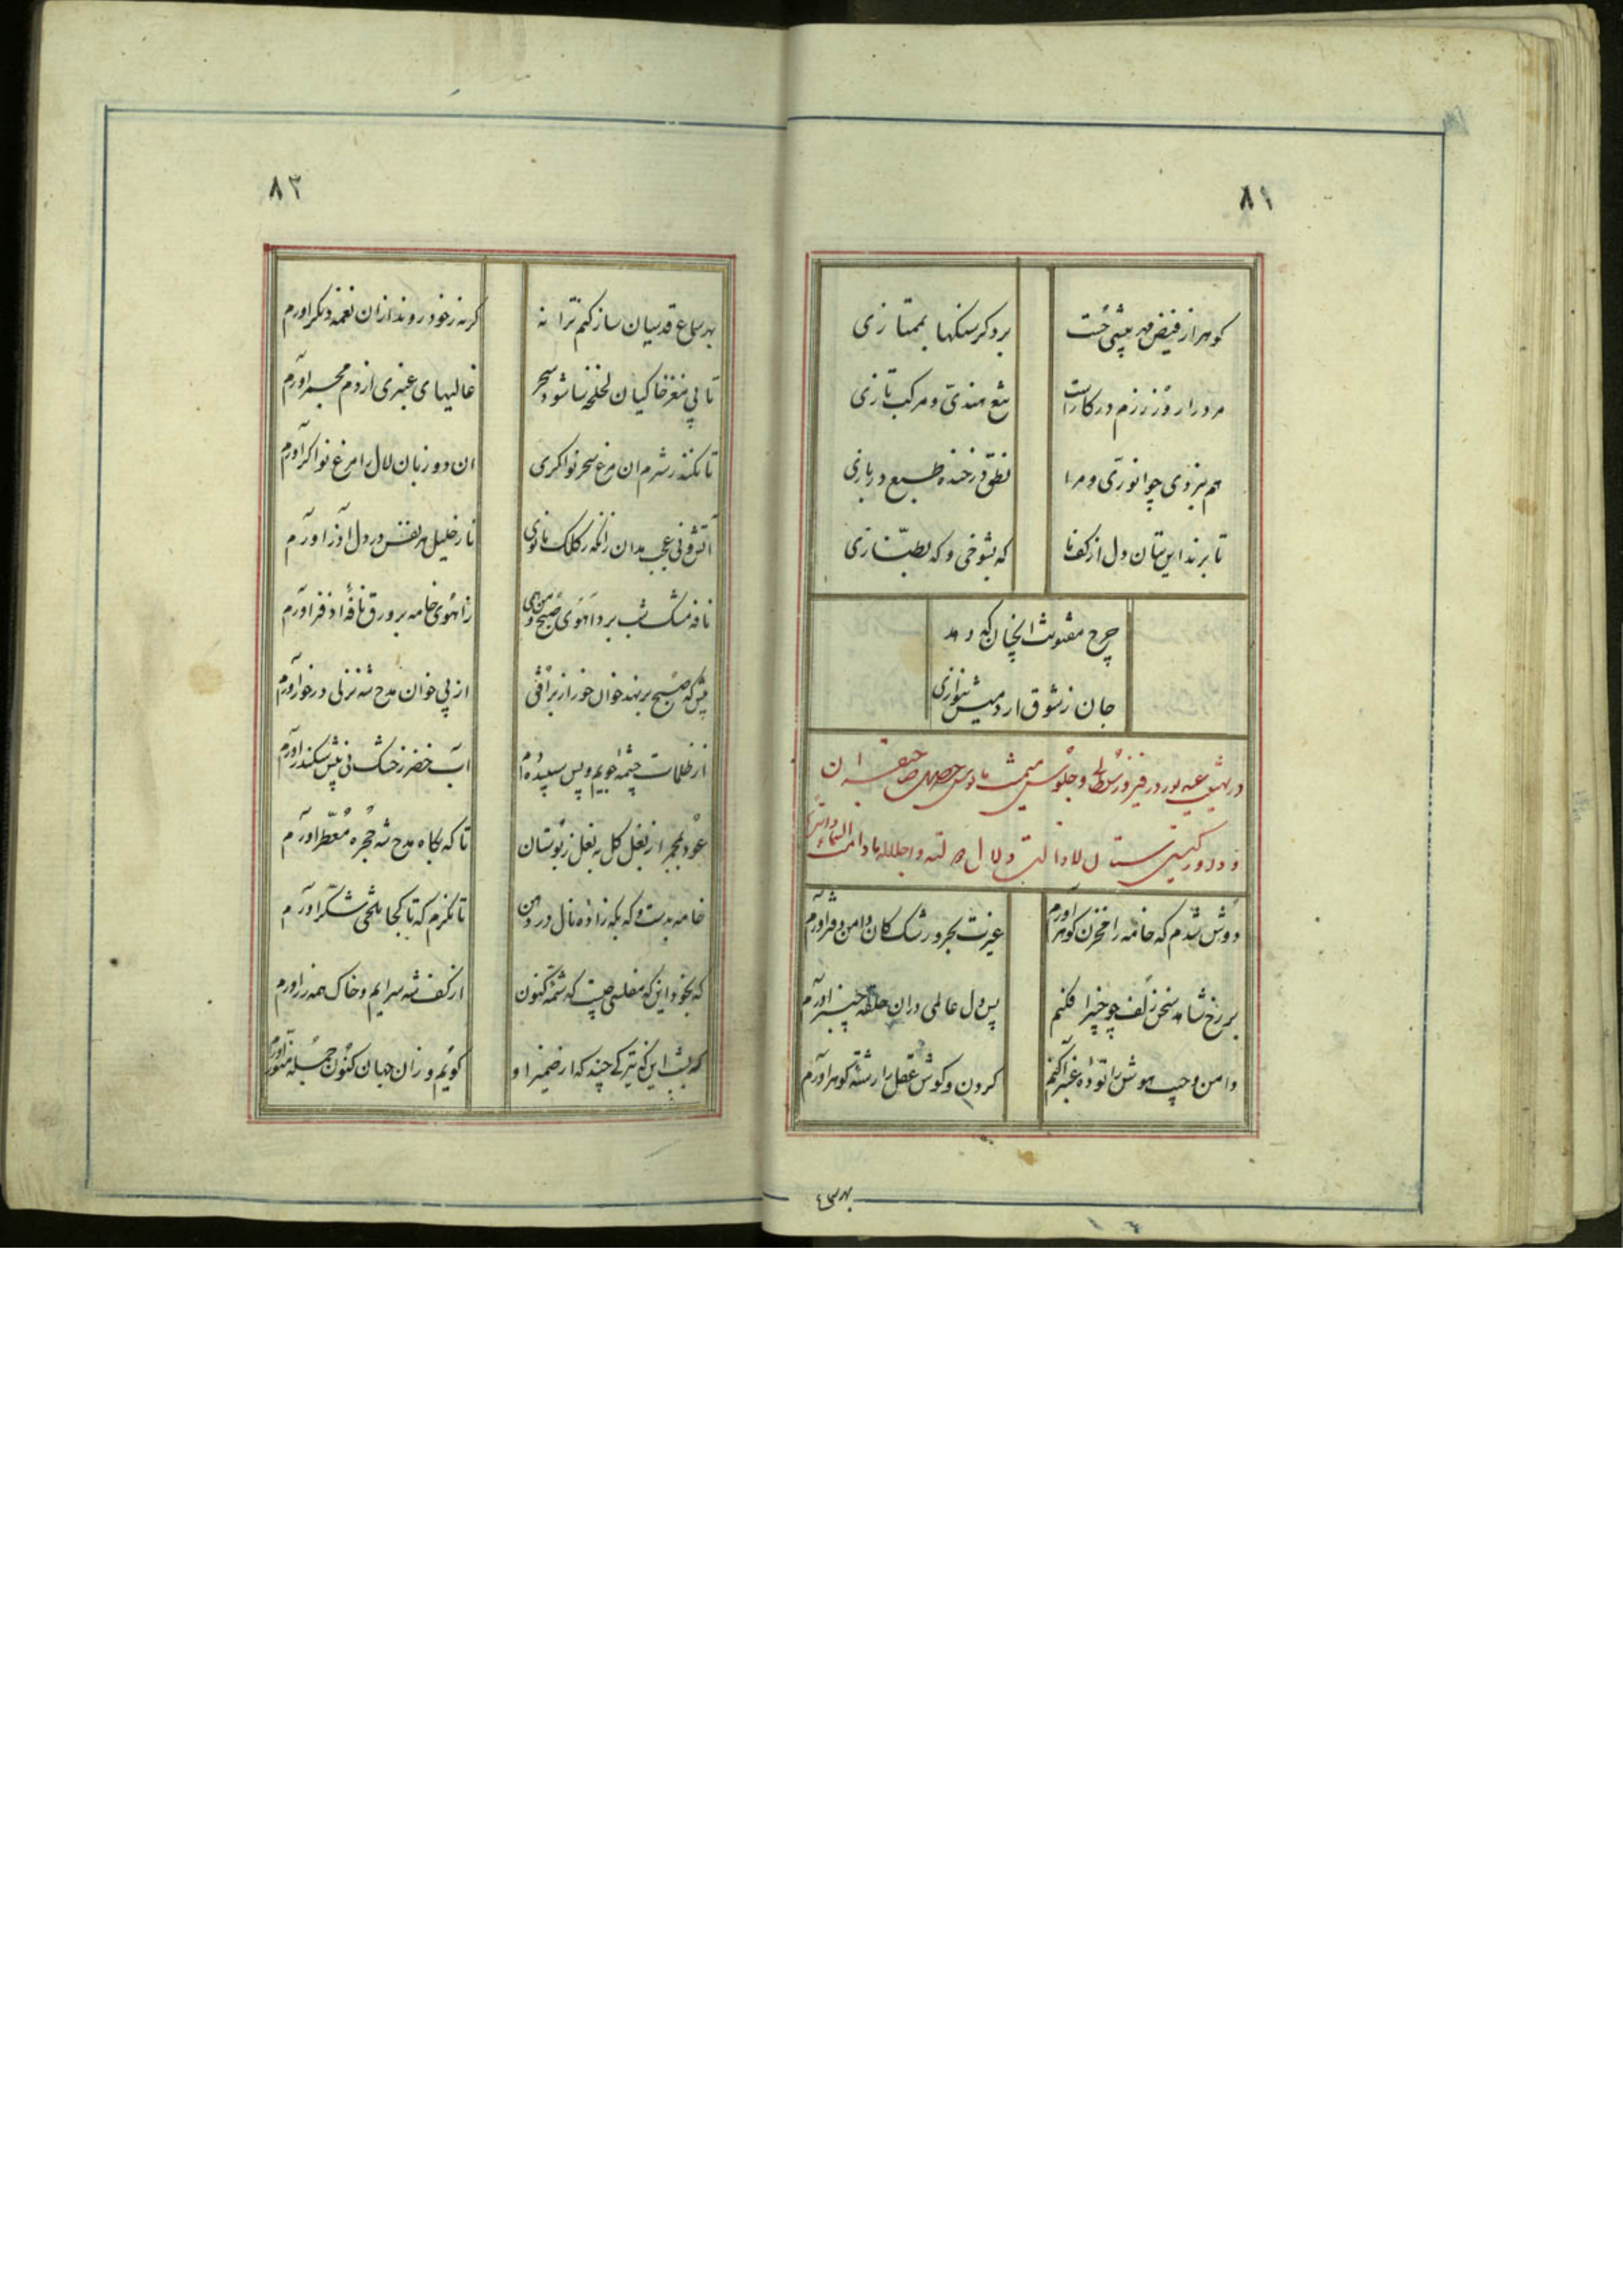 ٨١
کوهر از فیض مهر پیشی جست
برد کر سنکها بممتازی
مرد را روز رزم در کار است
تیغ هندی و مرکب تازی
هم نبردی چو انوری و مرا
نطق فرخنده طبع در بازی
تا برند این بتان دل از کف ما
که بشوخی و که بطنازی
چرخ مقتونت انچنان که دهد
جان ز شوق ار دمیش بنوازی
در تهنیت عید
دوش شدم که خامه را مخزن کوهر آورم
غیرت بحر و رشک کان دامن دفتر آورم
بر رخ شاهد سخن زلف چو چنبر افکنم
پس دل عالمی در ان حلقه چنبر آورم
دامن و جیب هوش را توده عنبر آکنم
کردن و کوش عقل را رشته کوهر آورم
بهر سماع
٨٢
بهر سماع قدسیان ساز کنم ترانه
کر نه ز خود روند از ان نغمه دیکر اورم
تا پی مغز خاکیان لخلخه سا شود سحر
غالیهای عنبری از دم مجمر اورم
تا نکند ز شرم ان مرغ سحر نواکری
ان دو زبان لال را مرغ نواکر آورم
آتش و نی عجب مدان زانکه ز کلک مانوی
نار خلیل هر نفس در دل آذر اورم
نافه مشک شب برد اهوی صبح و من همی
زاهوی خامه بر ورق نافه اذفر اورم
پیش که صبح بر نهد خوان خور از بر افق
از پی خوان مدح شه نزلی در خور آورم
از ظلمات چشمه جویم و پس سپیده دم
آب خضر ز خشک نی پیش سکندر اورم
عود بمجمر از بغل کل به بغل ز بوستان
تا که بکاه مدح شه حجره معطر اورم
خامه بدست و که بلب زاده نال در دهن
تا نکرم که تا کجا تلخی شکر آورم
که بخود این که مفلسی چیست که شمه کنون
از کف شه سرایم و خاک همه زر اورم
که بشب این که تیرکی چند که از ضمیر او
کویم و زان جهان کنون جمله منور آورم